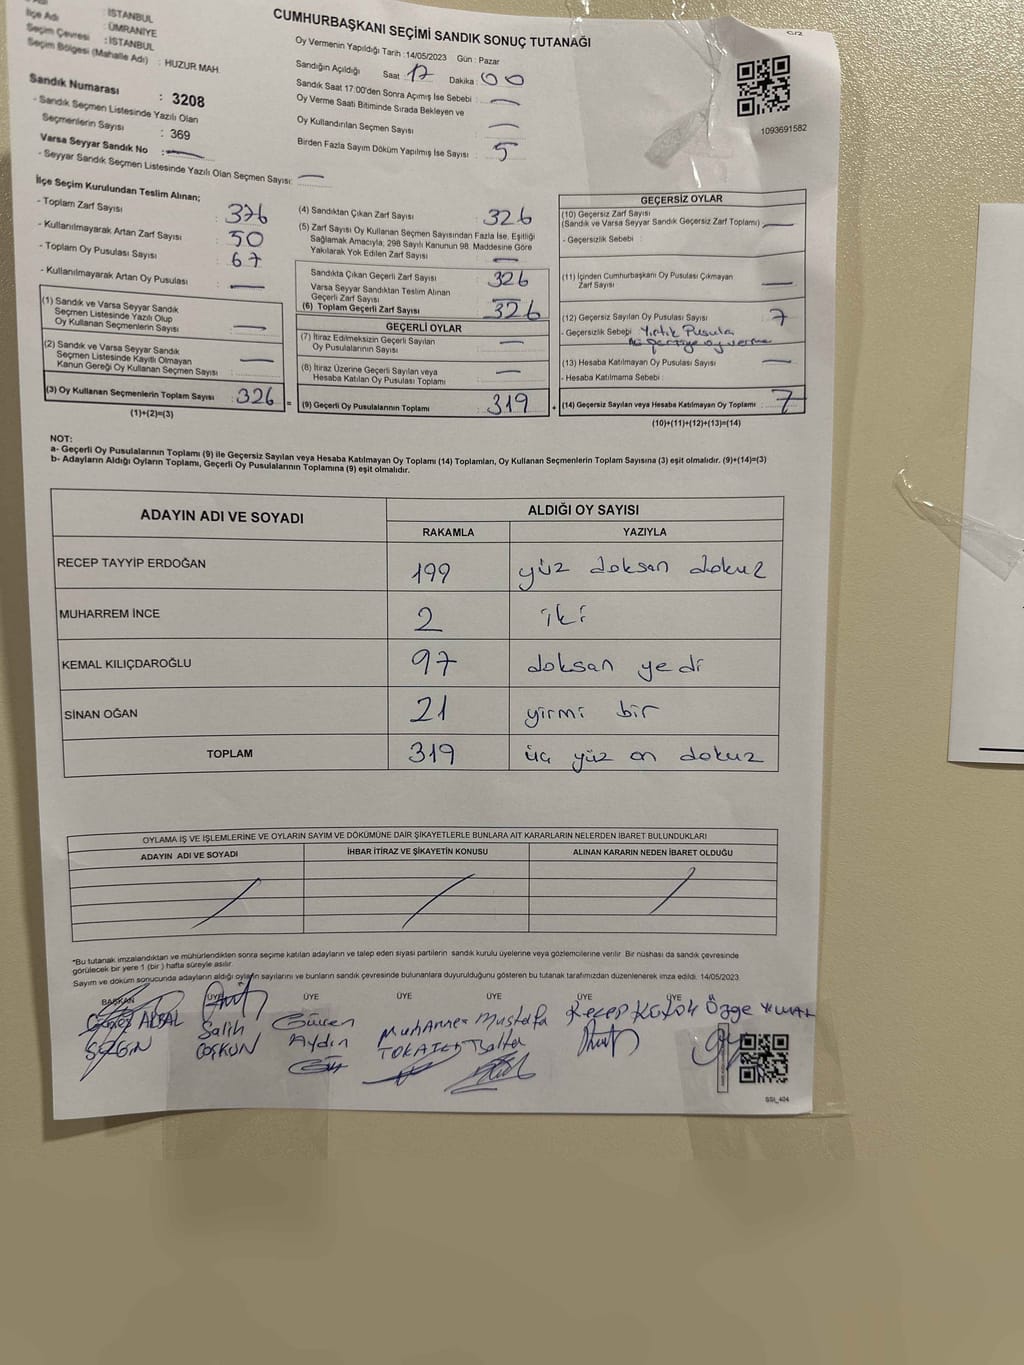 CUMHURBAŞKANI SEÇİMİ SANDIK SONUÇ TUTANAĞI
C/2
: İSTANBUL
İlçe Adı : ÜMRANİYE
Seçim Çevresi : İSTANBUL
Seçim Bölgesi (Mahalle Adı) : HUZUR MAH.
Sandık Numarası : 3208
- Sandık Seçmen Listesinde Yazılı Olan
Seçmenlerin Sayısı : 369
Varsa Seyyar Sandık No : —
- Seyyar Sandık Seçmen Listesinde Yazılı Olan Seçmen Sayısı: —
Oy Vermenin Yapıldığı Tarih :14/05/2023 Gün : Pazar
Sandığın Açıldığı Saat 17 Dakika : 00
Sandık Saat 17:00'den Sonra Açımış İse Sebebi : —
Oy Verme Saati Bitiminde Sırada Bekleyen ve
Oy Kullandırılan Seçmen Sayısı : —
Birden Fazla Sayım Döküm Yapılmış İse Sayısı : 5
1093691582
İlçe Seçim Kurulundan Teslim Alınan;
- Toplam Zarf Sayısı : 376
- Kullanılmayarak Artan Zarf Sayısı : 50
- Toplam Oy Pusulası Sayısı : 67
- Kullanılmayarak Artan Oy Pusulası : —
(1) Sandık ve Varsa Seyyar Sandık
Seçmen Listesinde Yazılı Olup
Oy Kullanan Seçmenlerin Sayısı : —
(2) Sandık ve Varsa Seyyar Sandık
Seçmen Listesinde Kayıtlı Olmayan
Kanun Gereği Oy Kullanan Seçmen Sayısı : —
(3) Oy Kullanan Seçmenlerin Toplam Sayısı : 326
(1)+(2)=(3)
(4) Sandıktan Çıkan Zarf Sayısı : 326
(5) Zarf Sayısı Oy Kullanan Seçmen Sayısından Fazla İse, Eşitliği
Sağlamak Amacıyla; 298 Sayılı Kanunun 98. Maddesine Göre
Yakılarak Yok Edilen Zarf Sayısı : —
Sandıkta Çıkan Geçerli Zarf Sayısı : 326
Varsa Seyyar Sandıktan Teslim Alınan
Geçerli Zarf Sayısı : —
(6) Toplam Geçerli Zarf Sayısı : 326
GEÇERLİ OYLAR
(7) İtiraz Edilmeksizin Geçerli Sayılan
Oy Pusulalarının Sayısı : —
(8) İtiraz Üzerine Geçerli Sayılan veya
Hesaba Katılan Oy Pusulası Toplamı : —
= (9) Geçerli Oy Pusulalarının Toplamı : 319
GEÇERSİZ OYLAR
(10) Geçersiz Zarf Sayısı
(Sandık ve Varsa Seyyar Sandık Geçersiz Zarf Toplamı) : —
- Geçersizlik Sebebi :
(11) İçinden Cumhurbaşkanı Oy Pusulası Çıkmayan
Zarf Sayısı : —
(12) Geçersiz Sayılan Oy Pusulası Sayısı : 7
- Geçersizlik Sebebi : Yırtık Pusula
iki partiye oy verme
(13) Hesaba Katılmayan Oy Pusulası Sayısı : —
- Hesaba Katılmama Sebebi :
+ (14) Geçersiz Sayılan veya Hesaba Katılmayan Oy Toplamı : 7
(10)+(11)+(12)+(13)=(14)
NOT:
a- Geçerli Oy Pusulalarının Toplamı (9) ile Geçersiz Sayılan veya Hesaba Katılmayan Oy Toplamı (14) Toplamları, Oy Kullanan Seçmenlerin Toplam Sayısına (3) eşit olmalıdır. (9)+(14)=(3)
b- Adayların Aldığı Oyların Toplamı, Geçerli Oy Pusulalarının Toplamına (9) eşit olmalıdır.
ADAYIN ADI VE SOYADI ALDIĞI OY SAYISI
RAKAMLA YAZIYLA
RECEP TAYYİP ERDOĞAN 199 yüz doksan dokuz
MUHARREM İNCE 2 iki
KEMAL KILIÇDAROĞLU 97 doksan yedi
SİNAN OĞAN 21 yirmi bir
TOPLAM 319 üç yüz on dokuz
OYLAMA İŞ VE İŞLEMLERİNE VE OYLARIN SAYIM VE DÖKÜMÜNE DAİR ŞİKAYETLERLE BUNLARA AİT KARARLARIN NELERDEN İBARET BULUNDUKLARI
ADAYIN ADI VE SOYADI İHBAR İTİRAZ VE ŞİKAYETİN KONUSU ALINAN KARARIN NEDEN İBARET OLDUĞU
*Bu tutanak imzalandıktan ve mühürlendikten sonra seçime katılan adayların ve talep eden siyasi partilerin sandık kurulu üyelerine veya gözlemcilerine verilir. Bir nüshası da sandık çevresinde
görülecek bir yere 1 (bir ) hafta süreyle asılır.
Sayım ve döküm sonucunda adayların aldığı oyların sayılarını ve bunların sandık çevresinde bulunanlara duyurulduğunu gösteren bu tutanak tarafımızdan düzenlenerek imza edildi. 14/05/2023
BAŞKAN ÜYE ÜYE ÜYE ÜYE ÜYE ÜYE
Salih Güven Muhammet Mustafa Recep Özge
SEZGİN COŞKUN Aydın Balta
SSI_404